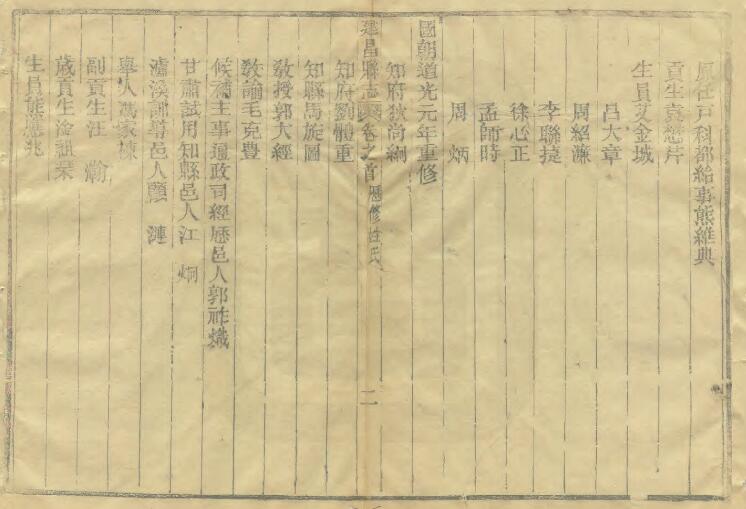 原任戸科都給事熊維典
貢生袁懋芹
生員艾金城
呂大章
周紹濂
李聯捷
徐心正
孟師時
周炳
國朝道光元年重修
知府狄尚絅
建昌縣志卷之首 歷修姓氏 二
知府劉體重
知縣馬旋圖
敎授郭大經
敎諭毛克豊
候補主事通政司經歷邑人郭祚熾
甘肅試用知縣邑人江炯
瀘溪訓導邑人 漣
舉人馮家棟
副貢生汪瀚
歲貢生淦祖
生員熊應兆